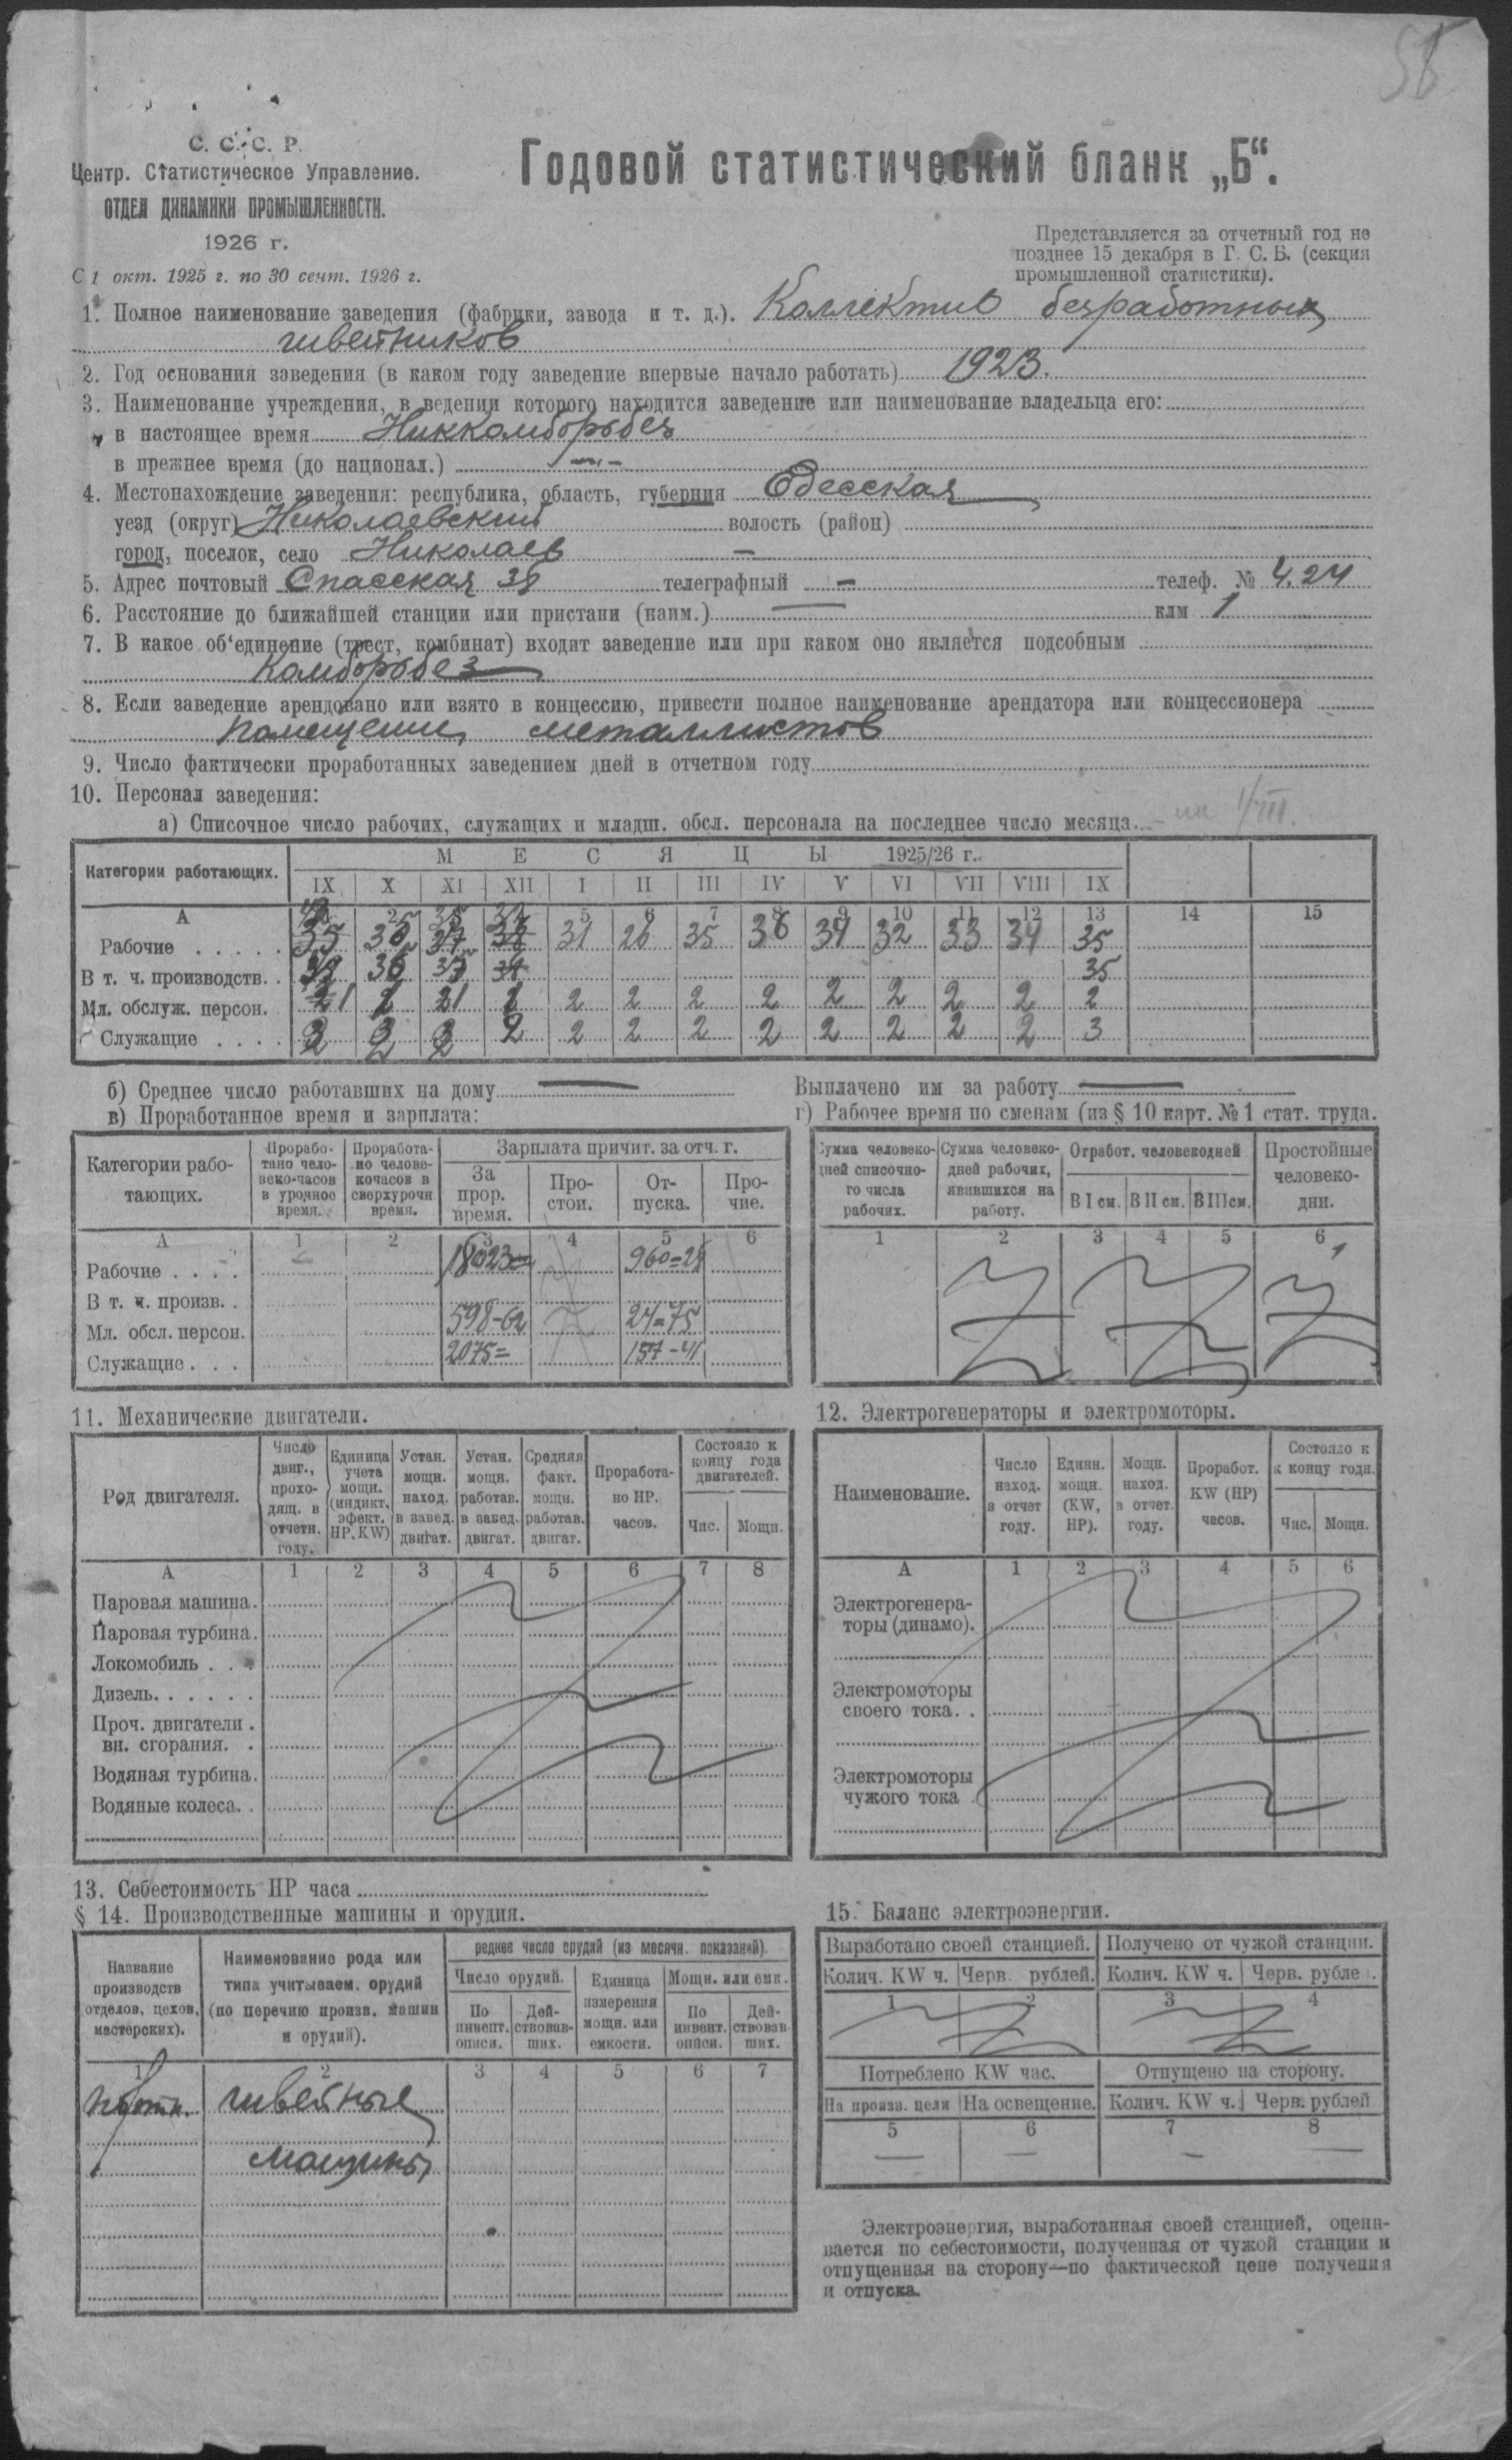 С. С. С. Р.
Центр. Статистическое Управление.
ОТДЕЛ ДИНАМИКИ ПРОМЫШЛЕННОСТИ.
1926 г.
С 1 окт. 1925 г. по 30 сент. 1926 г.
Годовой статистический бланк „Б“.
Представляется за отчетный год не
позднее 15 декабря в Г. С. Б. (секция
промышленной статистики).
1. Полное наименование заведения (фабрики, завода и т. д.). Коллектив безработных
швейников
2. Год основания заведения (в каком году заведение впервые начало работать) 1923.
3. Наименование учреждения, в ведении которого находится заведение или наименование владельца его:
в настоящее время Никкомборьбез
в прежнее время (до национал.) —„—
4. Местонахождение заведения: республика, область, губерния Одесская
уезд (округ) Николаевский волость (район)
город, поселок, село Николаев —
5. Адрес почтовый Спасская 38 телеграфный — телеф. № 4.24
6. Расстояние до ближайшей станции или пристани (наим.) — клм 1
7. В какое об‘единение (трест, комбинат) входит заведение или при каком оно является подсобным
Комборьбез
8. Если заведение арендовано или взято в концессию, привести полное наименование арендатора или концессионера
помещение металлистов
9. Число фактически проработанных заведением дней в отчетном году
10. Персонал заведения:
а) Списочное число рабочих, служащих и младш. обсл. персонала на последнее число месяца. на 1/VIII.
Категории работающих. М Е С Я Ц Ы 1925/26 г.
IX X XI XII I II III IV V VI VII VIII IX
А 2 5 6 7 8 9 10 11 12 13 14 15
Рабочие . . . . . 35 36 37 31 26 35 36 34 32 33 34 35
В т. ч. производств. . 36 37 35
Мл. обслуж. персон. 2 2 2 2 2 2 2 2 2
Служащие . . . . 2 2 2 2 2 2 2 2 2 3
б) Среднее число работавших на дому —
Выплачено им за работу —
в) Проработанное время и зарплата:
г) Рабочее время по сменам (из § 10 карт. № 1 стат. труда.
Категории работающих.
Проработано человеко-часов в урочное время.
Проработано человекочасов в сверхурочн. время.
Зарплата причит. за отч. г.
За прор. время. Простои. Отпуска. Прочие.
А 1 2 3 4 5 6
Рабочие . . . . 18023= 960=25
В т. ч. произв. .
Мл. обсл. персон. 598-62 24=75
Служащие . . . 2075= 157-41
Сумма человеко-дней списочного числа рабочих.
Сумма человеко-дней рабочих, явившихся на работу.
Отработ. человекодней
В I см. В II см. В III см.
Простойные человеко-дни.
1 2 3 4 5 6
11. Механические двигатели.
Род двигателя.
Число двиг., проходящ. в отчетн. году.
Единица учета мощн. (индикт. эфект. HP, KW)
Устан. мощн. наход. в завед. двигат.
Устан. мощн. работав. в завед. двигат.
Средняя факт. мощн. работав. двигат.
Проработано HP. часов.
Состояло к концу года двигателей.
Чис. Мощн.
А 1 2 3 4 5 6 7 8
Паровая машина.
Паровая турбина.
Локомобиль . . .
Дизель. . . . . .
Проч. двигатели .
вн. сгорания. .
Водяная турбина.
Водяные колеса. .
12. Электрогенераторы и электромоторы.
Наименование.
Число наход. в отчет году.
Единн. мощн. (KW, HP).
Мощн. наход. в отчет. году.
Проработ. KW (HP) часов.
Состояло к концу года.
Чис. Мощн.
А 1 2 3 4 5 6
Электрогенера-
торы (динамо).
Электромоторы
своего тока. .
Электромоторы
чужого тока .
13. Себестоимость HP часа
§ 14. Производственные машины и орудия.
Название производств отделов, цехов, мастерских).
Наименование рода или типа учитываем. орудий (по перечню произв. машин и орудий).
реднее число орудий (из месячн. показаний).
Число орудий.
По инвент. описи. Действовавших.
Единица измерения мощн. или емкости.
Мощн. или емк.
По инвент. описи. Действовав ших.
1 2 3 4 5 6 7
швейные
машины
15. Баланс электроэнергии.
Выработано своей станцией. Получено от чужой станции.
Колич. KW ч. Черв. рублей. Колич. KW ч. Черв. рубле .
1 2 3 4
Потреблено KW час. Отпущено на сторону.
На произв. цели На освещение. Колич. KW ч. Черв. рублей
5 6 7 8
— — — —
Электроэнергия, выработанная своей станцией, оцени-
вается по себестоимости, полученная от чужой станции и
отпущенная на сторону—по фактической цене получения
и отпуска.